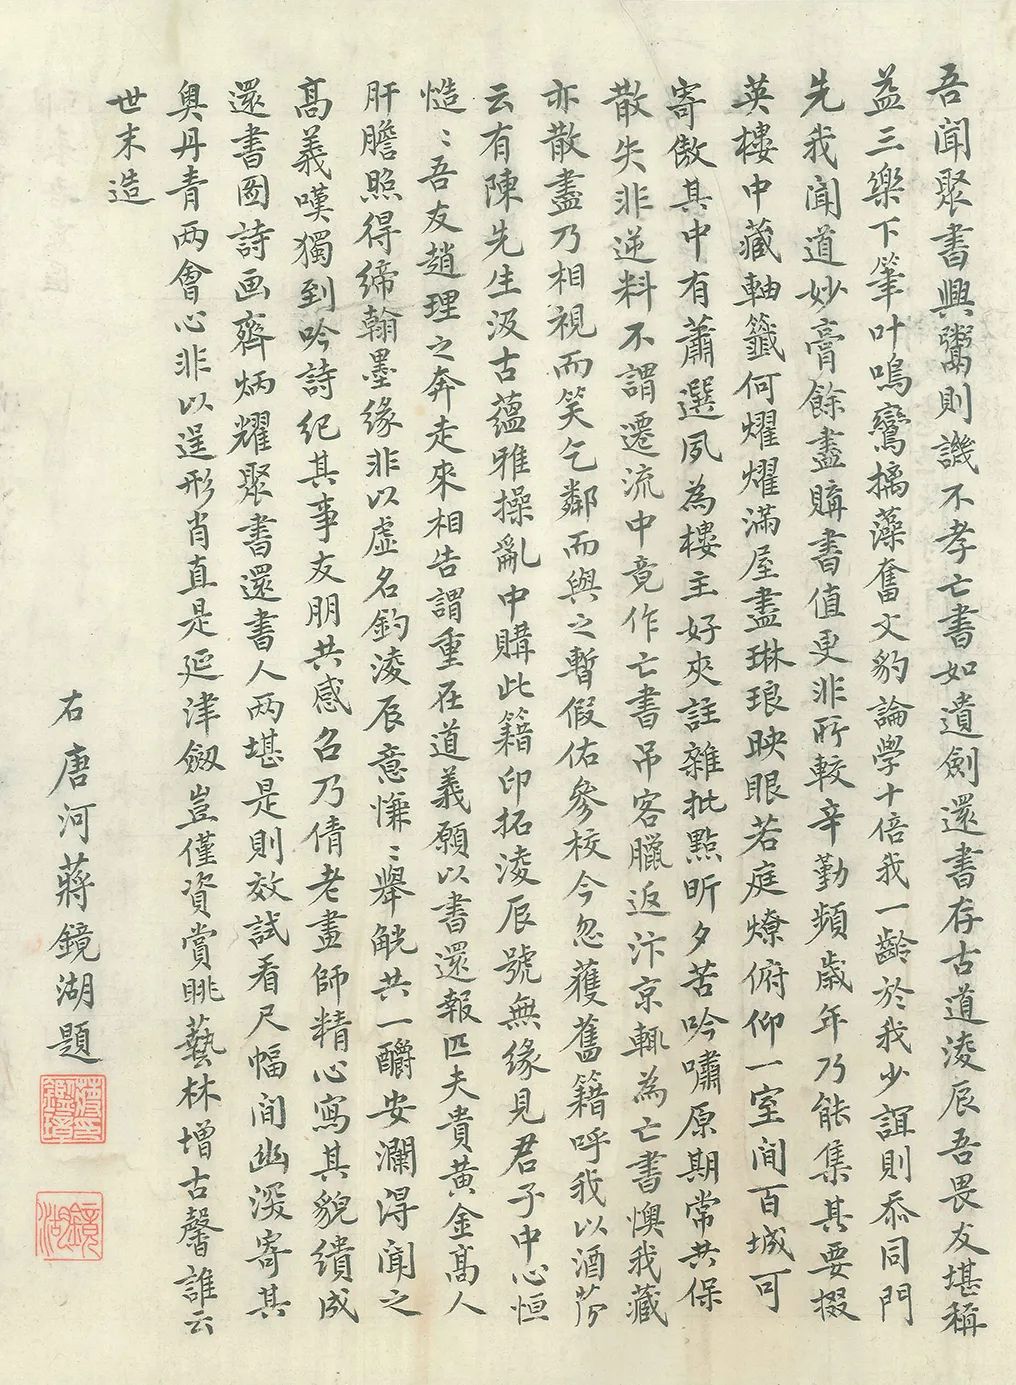 吾聞聚書興鬻則譏不孝亡書如遺劍還書存古道淩辰吾畏友堪稱
益三樂下筆叶鳴鸞摛藻奮文豹論學十倍我一齡於我少誼則忝同門
先我聞道妙膏餘盡購書值更非所較辛勤頻歲年乃能集其要掇
英樓中藏軸籤何燿燿滿屋盡琳琅映眼若庭燎俯仰一室間百城可
寄傲其中有蕭選夙為樓主好夾註雜批點昕夕苦吟嘯原期常共保
散失非逆料不謂遷流中竟作亡書吊客臘返汴京輒為亡書懊我藏
亦散盡乃相視而笑乞鄰而與之暫假佑參校今忽獲舊籍呼我以酒
云有陳先生汲古蘊雅操亂中購此籍印拓淩辰號無緣見君子中心恒
慥:吾友趙理之奔走來相告謂重在道義願以書還報匹夫貴黃金高人
肝膽照得締翰墨緣非以虛名釣淩辰意慊:舉觥共一釂安瀾得聞之
高義嘆獨到吟詩紀其事友朋共感召乃倩老畫師精心寫其貌繢成
還書圖詩画齊炳耀聚書還書人两堪是則效試看尺幅間幽深寄其
奧丹青两會心非以逞形肖直是延津劔豈僅資賞眺藝林增古馨誰云
世末造
右唐河蔣鏡湖題
蔣鏡湖
鏡湖